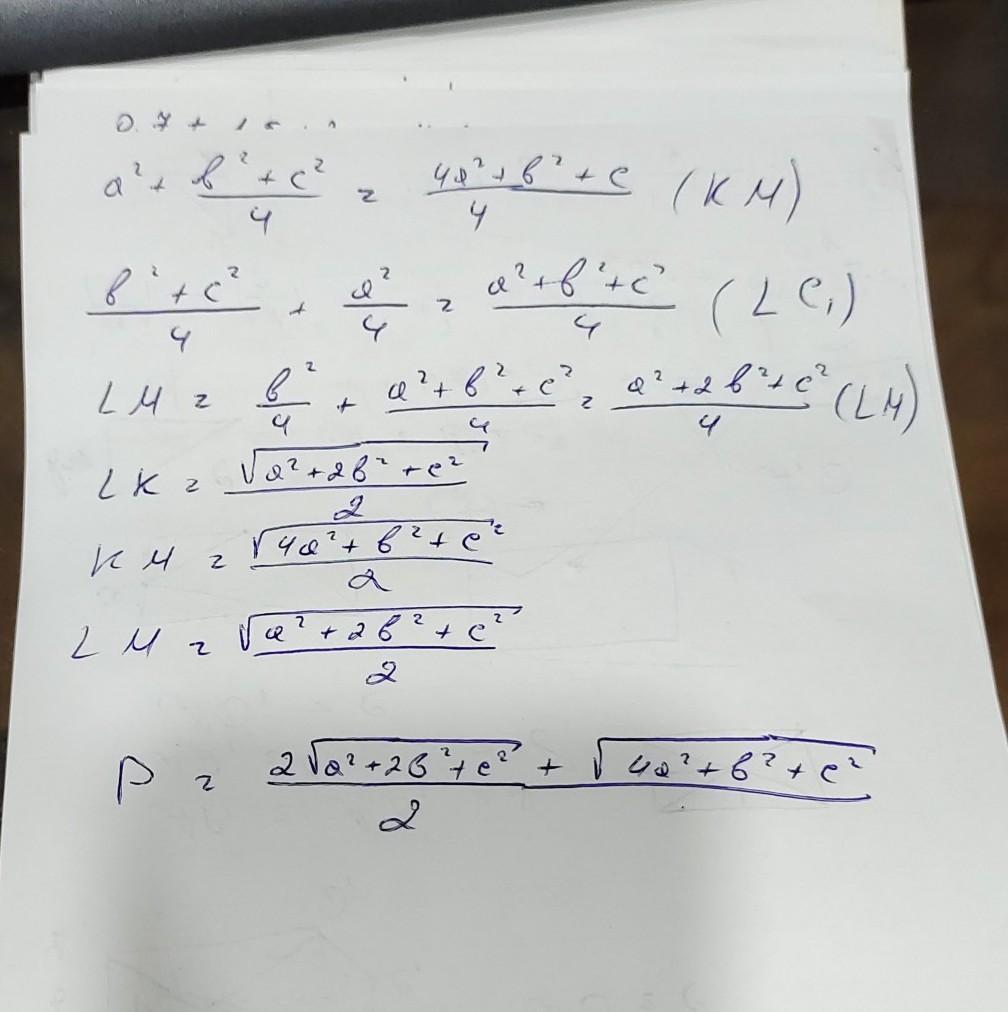 0.7 +
a² + (в² + c²)/4 = (4a² + в² + c)/4 (KM)
(в² + c²)/4 + a²/4 = (a² + в² + c²)/4 (LC₁)
LM = в²/4 + (a² + в² + c²)/4 = (a² + 2в² + c²)/4 (LM)
LK = √(a² + 2в² + c²)/2
KM = √(4a² + в² + c²)/2
LM = √(a² + 2в² + c²)/2
P = (2√(a² + 2в² + c²) + √(4a² + в² + c²))/2